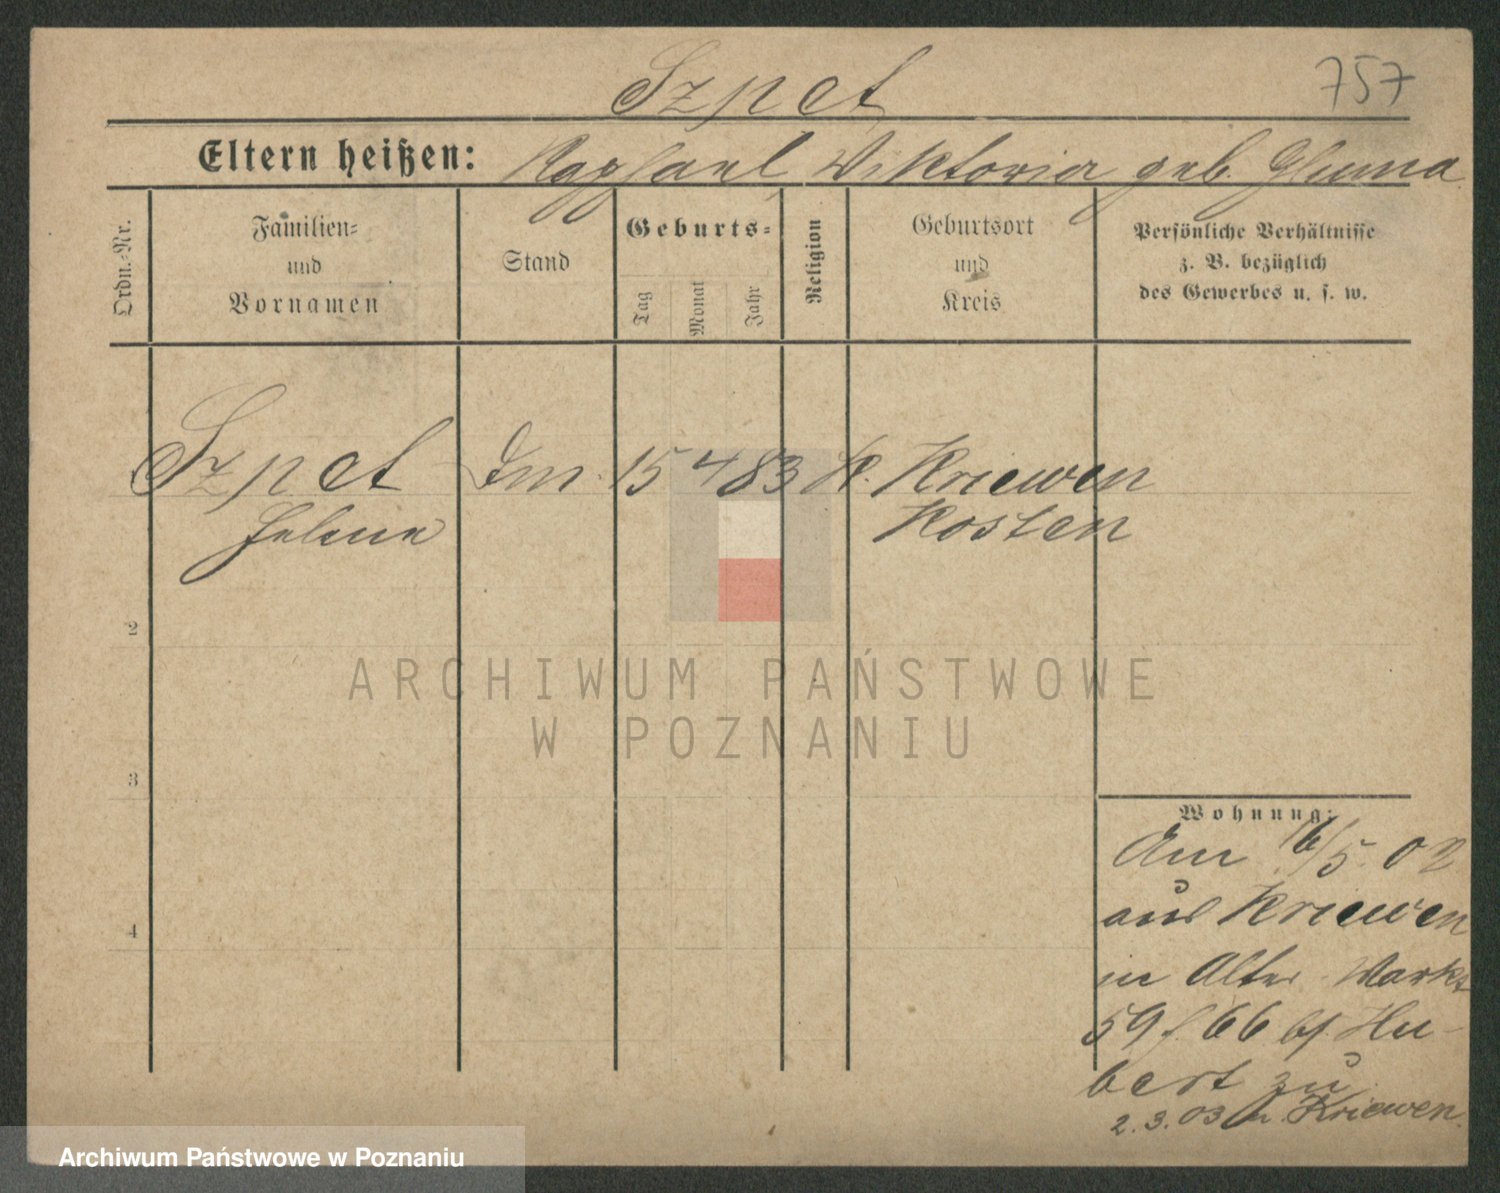 757
Szpet
Eltern heißen: Raphael, Wiktoria geb. Gluma
Ordn.-Nr.
Familien-
und
Vornamen
Stand
Geburts-
Tag
Monat
Jahr
Religion
Geburtsort
und
Kreis
Persönliche Verhältnisse
z. B. bezüglich
des Gewerbes u. s. w.
Szpet 15 4 83 k. Kriewen
Helene Kosten
2
3
4
Wohnung:
Am 16/5. 02
aus Kriewen
in Alter Markt
59/66 bf. Hu-
bert zu
2.3.03 n. Kriewen.
ARCHIWUM PAŃSTWOWE
W POZNANIU
Archiwum Państwowe w Poznaniu